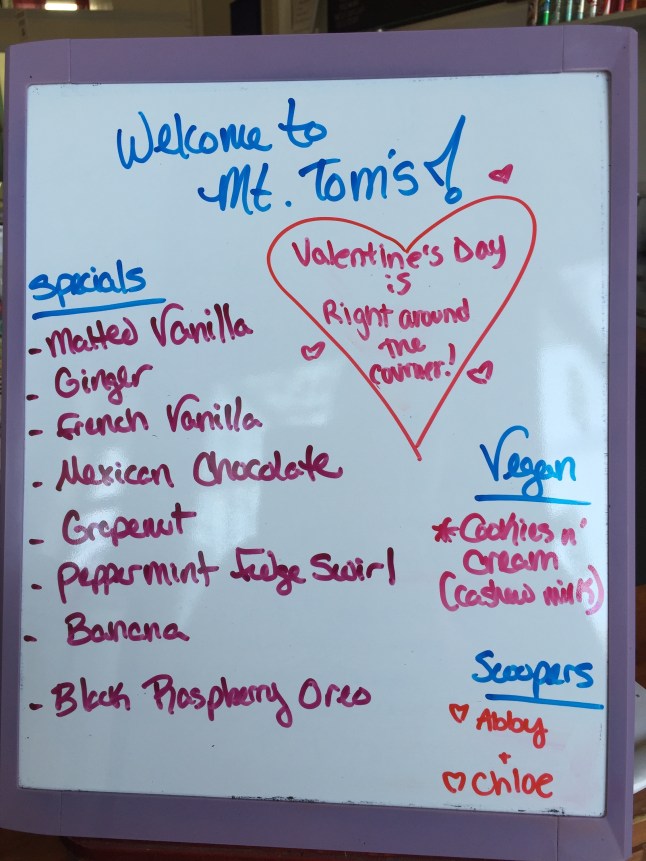 Welcome to
Mt. Tom's!
Valentine's Day
is
Right around
the
corner!
Specials
- Malted Vanilla
- Ginger
- French Vanilla
- Mexican Chocolate
- Grapenut
- Peppermint Fudge Swirl
- Banana
- Black Raspberry Oreo
Vegan
*Cookies n'
Cream
(cashew milk)
Scoopers
♡ Abby
+
♡ Chloe